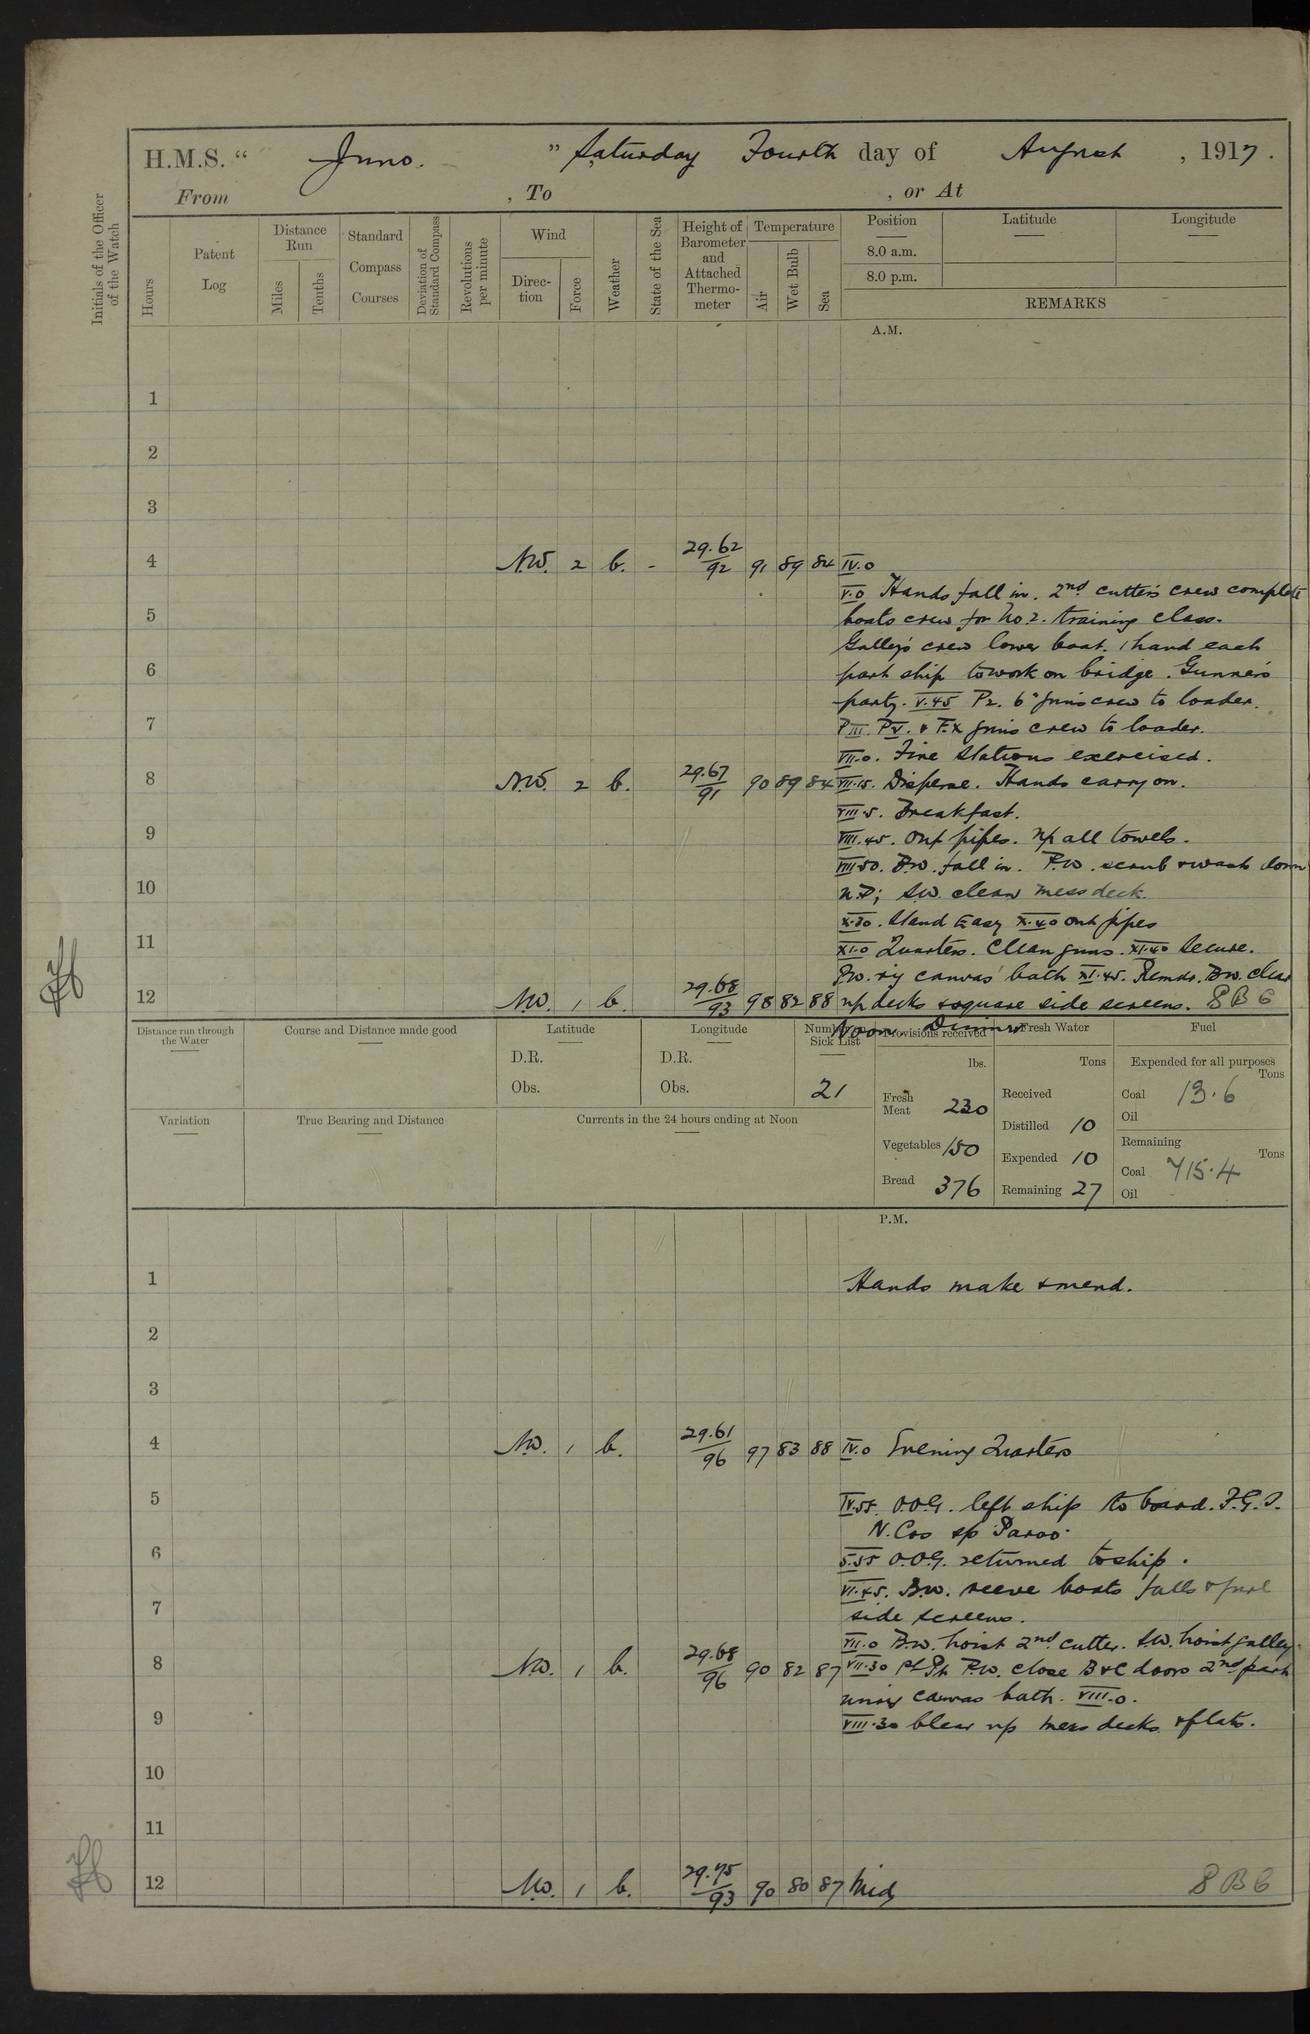 H.M.S. " Juno. " Saturday Fourth day of August, 1917.
From , To , or At
Initials of the Officer of the Watch
Hours
Patent Log
Distance Run
Miles
Tenths
Standard Compass Courses
Deviation of Standard Compass
Revolutions per minute
Wind
Direction
Force
Weather
State of the Sea
Height of Barometer and Attached Thermometer
Temperature
Air
Wet Bulb
Sea
Position
8.0 a.m.
8.0 p.m.
Latitude
Longitude
REMARKS
A.M.
1
2
3
4 NW. 2 b. - 29.62/92 91 89 84 IV.0
V.0 Hands fall in. 2nd cutters crew complete
5
boats crew for No 2. training class.
Galley's crew lower boat. 1 hand each
6
part ship to work on bridge. Gunner's
party. V.45 P2. 6" guns crew to loader.
7
PIII. PV. & F.X guns crew to loader.
VII.0. Fire Stations exercised.
8 NW. 2 b. 29.67/91 90 89 84 VII.15. Disperse. Hands carry on.
VIII 5. Breakfast.
9
VIII.45. Out pipes. Up all towels.
VIII 50. B.W. fall in. P.W. scrub & wash down
10
U.D; S.W. clean mess deck.
X.30. Stand Easy X.40 out pipes
11
XI.0 Quarters. Clean guns. XI.40 Secure.
P.W. rig canvas bath XI.45. Remdr. B.W. clear
12 NW. 1 b. 29.68/93 98 82 88 up decks & square side screens. 8 B 6
Noon. Dinner
Distance run through the Water
Course and Distance made good
Latitude
D.R.
Obs.
Longitude
D.R.
Obs.
Number on Sick List
21
Provisions received
lbs.
Fresh Meat 230
Vegetables 150
Bread 376
Fresh Water
Tons
Received
Distilled 10
Expended 10
Remaining 27
Fuel
Expended for all purposes
Tons
Coal 13.6
Oil
Remaining
Tons
Coal 715.4
Oil
Variation
True Bearing and Distance
Currents in the 24 hours ending at Noon
P.M.
1 Hands make & mend.
2
3
4 NW. 1 b. 29.61/96 97 83 88 IV.0 Evening Quarters
5 IV.55. O.O.G. left ship to board. F.G.S.
N. Cos sp Paroo.
6 5.55 O.O.G. returned to ship.
VI.45. B.W. reeve boats falls & furl
7 side screens.
VII.0 B.W. hoist 2nd cutter. S.W. hoist galley.
8 NW. 1 b. 29.68/96 90 82 87 VII.30 P.W. close B & C doors 2nd part
unrig canvas bath. VIII.0.
9 VIII.30 Clear up mess decks & flats.
10
11
12 NW. 1 b. 29.75/93 90 80 87 Mid 8 B 6